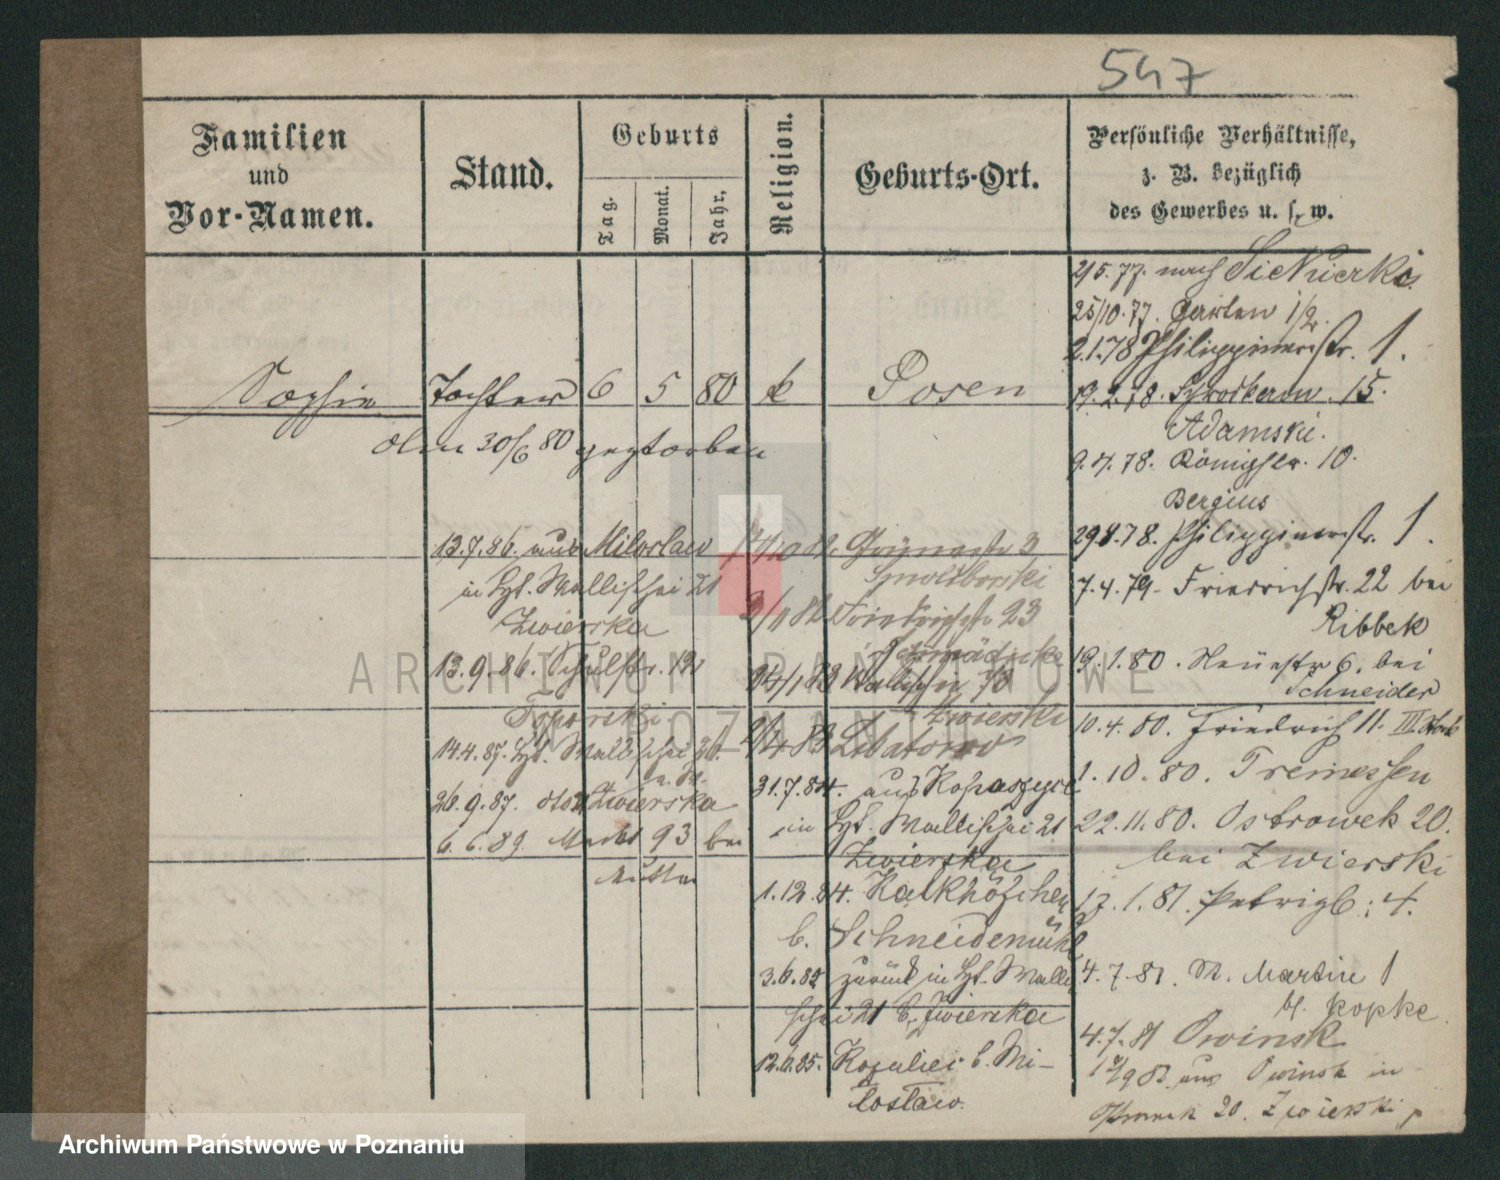 547
Familien
und
Vor-Namen.
Stand.
Geburts
Tag.
Monat.
Jahr.
Religion.
Geburts-Ort.
Persönliche Verhältnisse,
z. B. bezüglich
des Gewerbes u. s. w.
Sophie Tochter 6 5 80 k Posen
den 30/6 80 gestorben
2/5.77. nach Siekierki
25/10.77. Garten 1/2.
2.1.78 Philippinerstr. 1.
19.2.78. 15.
Adamski.
9.4.78. Königstr. 10.
Bergius
29.8.78. Philippinerstr. 1.
7.4.79. Friedrichstr. 22 bei
Ribbek
19.1.80. Neuestr 6. bei
Schneider
10.4.80. Friedrich 11. III Stock
1.10.80. Tremessen
22.11.80. Ostrowek 20.
bei Zwierski
17.1.81. Petrigb: 4.
4.7.81. St. Martin 1
b. Kopke
4.7.81 Owinsk
aus Owinsk in
20. Zwierski
82. 3
Smolibowski
Friedrichstr 23
Wallischei
Zwierski
31.7.84. aus
in Hpt. Wallischei 21
Zwierska
1.12.84.
b. Schneidemühl
3.6.85 zurück in Hpt. Walli
schei 21 b. Zwierska
12.6.85. b. Mi-
loslaw.
13.7.86. aus Miloslaw
in Hpt. Wallischei 21
Zwierska
13.9.86. Schulstr. 13
Toporski.
14.4.87. Hpt. Wallischei
26.9.87. Zwierska
6.6.89. Markt 93 bei
ARCHIWUM PAŃSTWOWE
W POZNANIU
Archiwum Państwowe w Poznaniu